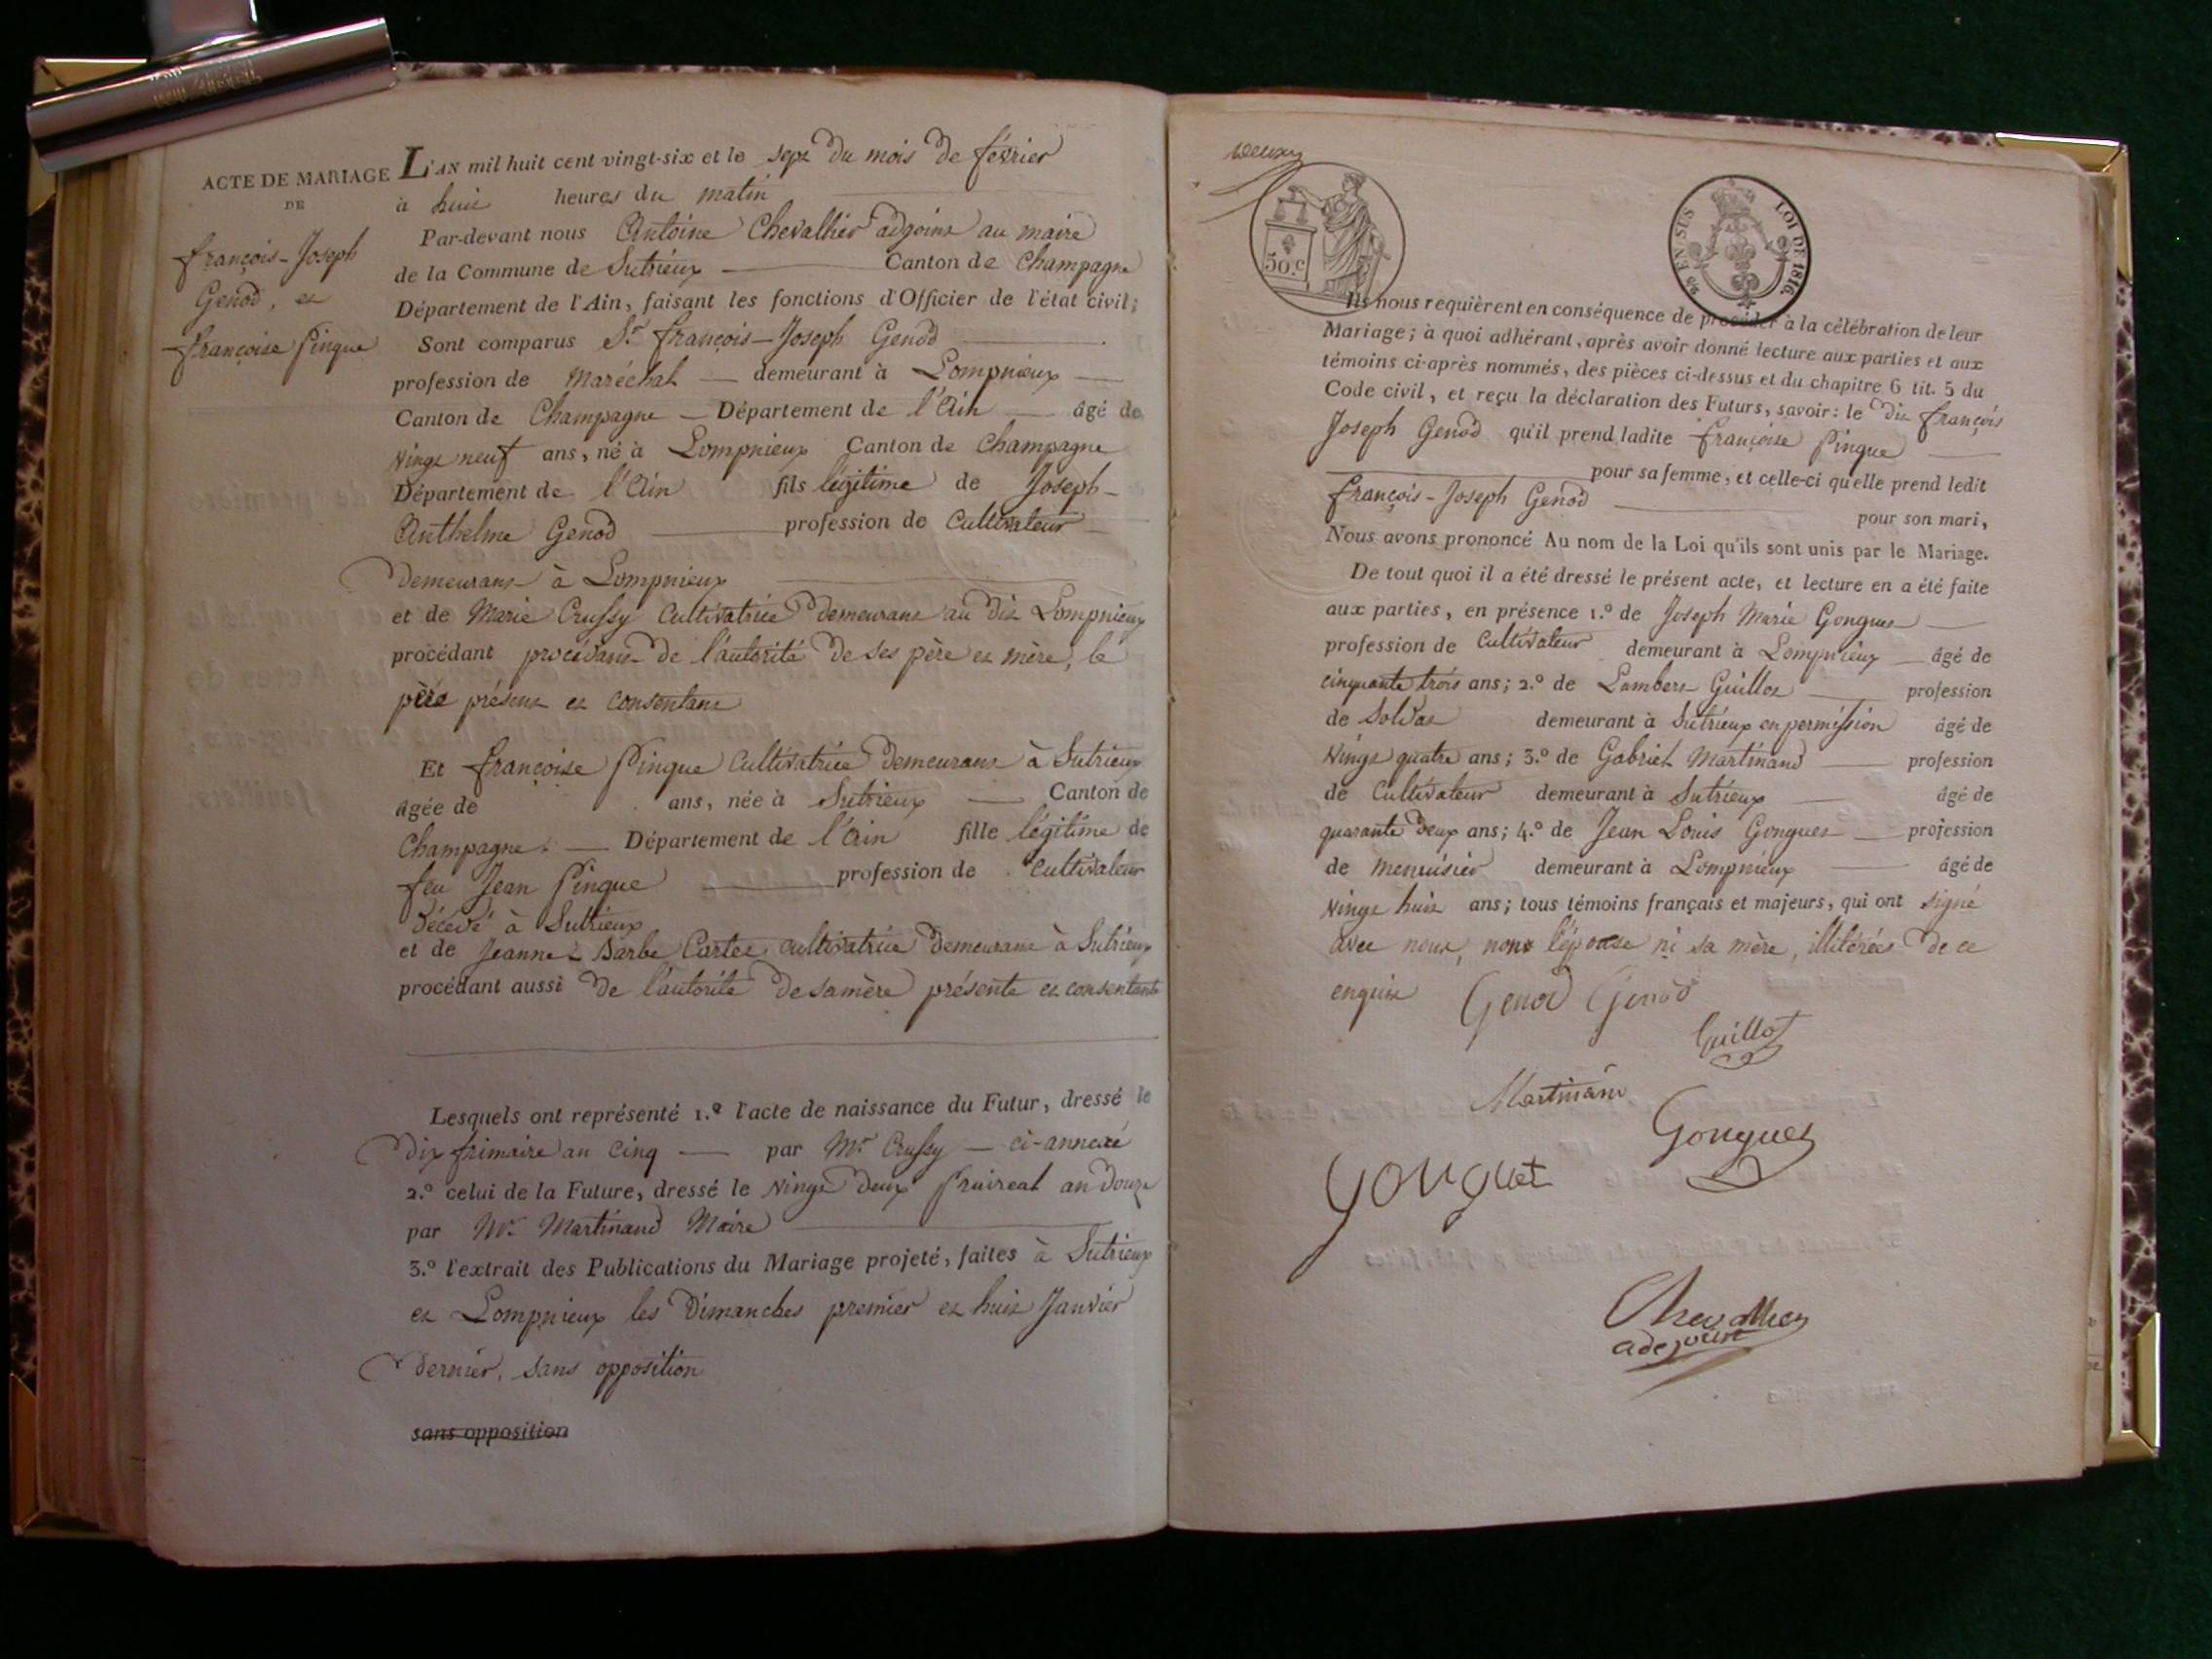 ACTE DE MARIAGE
DE
françois-Joseph
Genod, et
françoise Pingue
L'AN mil huit cent vingt-six et le sept du mois de février
à huit heures du matin
Par-devant nous Antoine Chevallier adjoint au maire
de la Commune de Sutrieux Canton de Champagne
Département de l'Ain, faisant les fonctions d'Officier de l'état civil;
Sont comparus Sr françois-Joseph Genod
profession de Maréchal demeurant à Lompnieux
Canton de Champagne Département de l'Ain âgé de
vingt neuf ans, né à Lompnieux Canton de Champagne
Département de l'Ain fils légitime de Joseph-
Anthelme Genod profession de Cultivateur
demeurant à Lompnieux
et de Marie Crussy Cultivatrice demeurant au dit Lompnieux
procédant procédant de l'autorité de ses père et mère, le
père présent et consentant
Et françoise Pingue Cultivatrice demeurant à Sutrieux
âgée de ans, née à Sutrieux Canton de
Champagne. Département de l'Ain fille légitime de
feu Jean Pingue profession de Cultivateur
décédé à Sutrieux
et de Jeanne-Barbe Cartet cultivatrice demeurant à Sutrieux
procédant aussi de l'autorité de sa mère présente et consentante
Lesquels ont représenté 1.º l'acte de naissance du Futur, dressé le
dix frimaire an cinq par Mr Crussy ci-annexé
2.º celui de la Future, dressé le vingt deux Prairéal an douze
par Mr Martinand Maire
3.º l'extrait des Publications du Mariage projeté, faites à Sutrieux
et Lompnieux les Dimanches premier et huit Janvier
dernier, sans opposition
sans opposition
deux
50.c
EN SUS
LOI DE 1816.
Ils nous requièrent en conséquence de procéder à la célébration de leur
Mariage; à quoi adhérant, après avoir donné lecture aux parties et aux
témoins ci-après nommés, des pièces ci-dessus et du chapitre 6 tit. 5 du
Code civil, et reçu la déclaration des Futurs, savoir: le dit françois
Joseph Genod qu'il prend ladite françoise Pingue
pour sa femme, et celle-ci qu'elle prend ledit
françois-Joseph Genod pour son mari,
Nous avons prononcé Au nom de la Loi qu'ils sont unis par le Mariage.
De tout quoi il a été dressé le présent acte, et lecture en a été faite
aux parties, en présence 1.º de Joseph Marie Gonguet
profession de Cultivateur demeurant à Lompnieux âgé de
cinquante trois ans; 2.º de Lambert Guillot profession
de Soldat demeurant à Sutrieux en permission âgé de
vingt quatre ans; 3.º de Gabriel Martinand profession
de Cultivateur demeurant à Sutrieux âgé de
quarante deux ans; 4.º de Jean Louis Gonguet profession
de menuisier demeurant à Lompnieux âgé de
vingt huit ans; tous témoins français et majeurs, qui ont signé
avec nous, non l'épouse ni sa mère, illitérées de ce
enquise Genod Genod
Guillot
Martinand
Gonguet
gonguet
Chevallier
adejoint